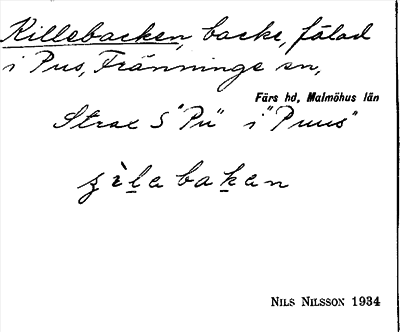 Killebacken, backe, fälad
i Pus, Fränninge sn,
Färs hd, Malmöhus län
Strax S "Pu" i "Puus"
NILS NILSSON 1934